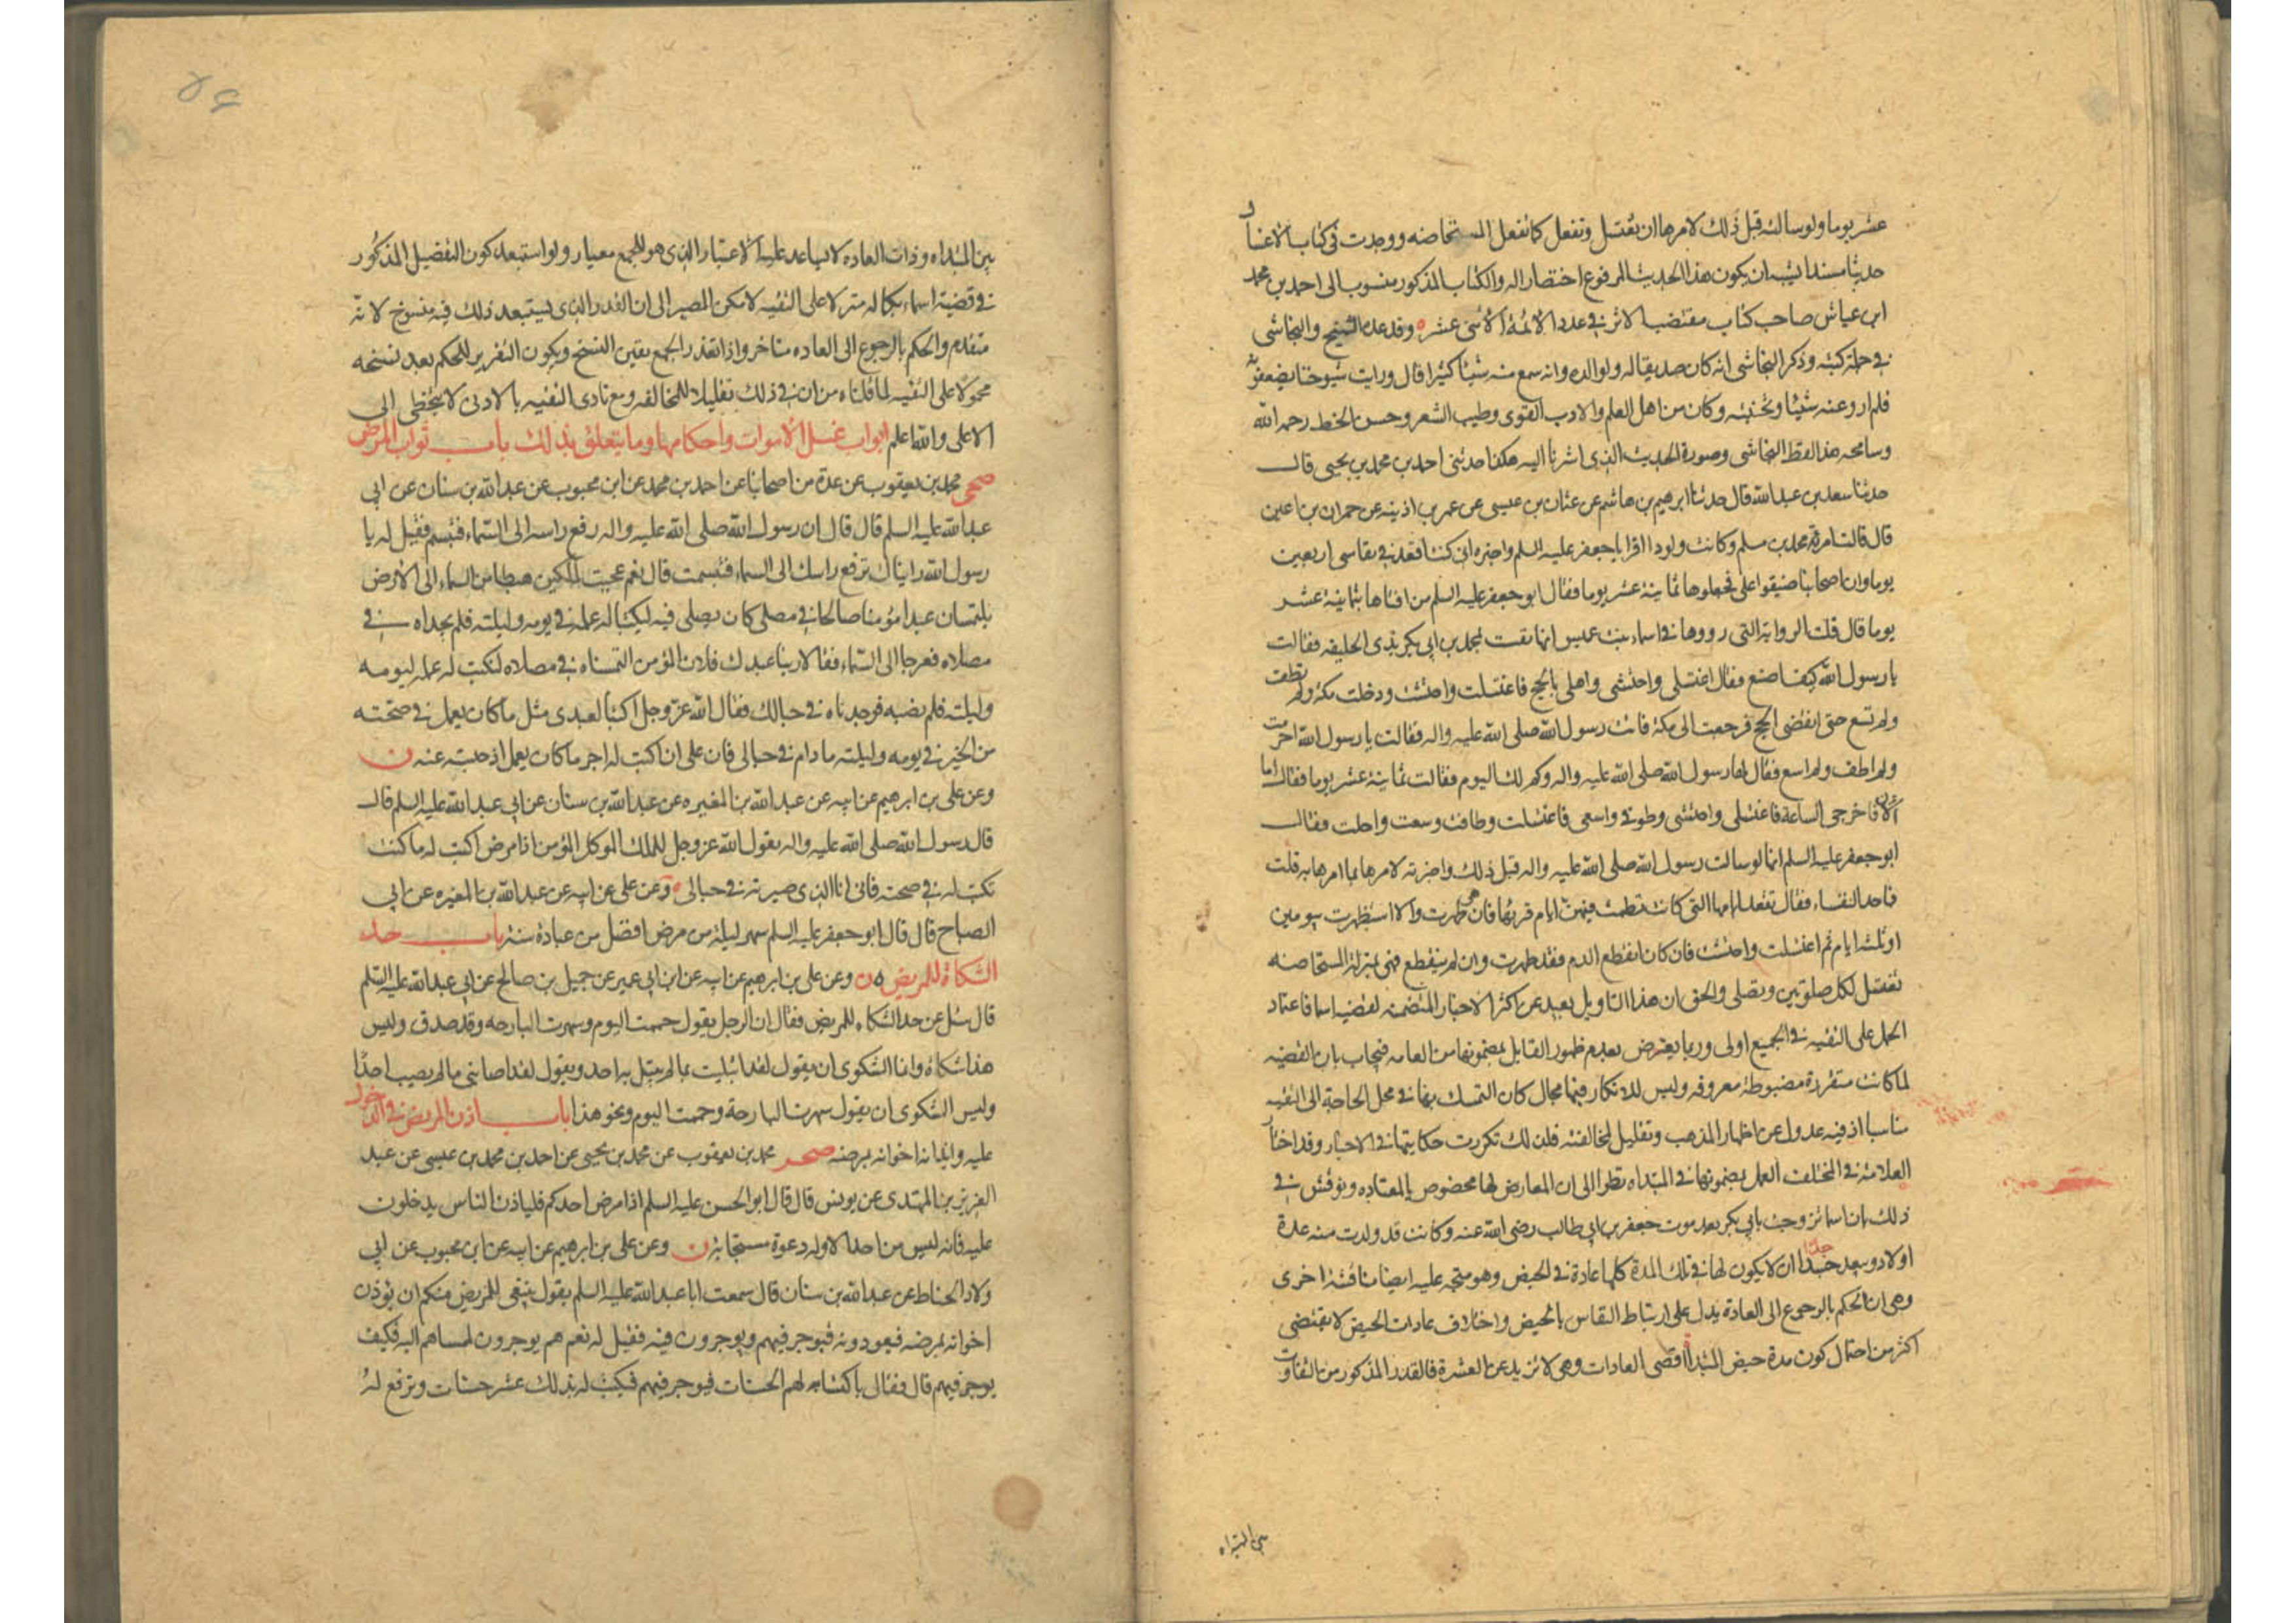 عشر يوما ولو سالته قبل ذلك لامرها ان تغتسل وتفعل كما تفعل المستحاضه ووجدت فى كتاب الاغسال
حديثا مسندا يشبه ان يكون هذا الحديث المرفوع اختصارا له والكتاب المذكور منسوب الى احمد بن محمد
ابن عياش صاحب كتاب مقتضب الاثر فى عدد الائمة الاثنى عشر وقد عده الشيخ والنجاشى
فى جملة كتبه وذكر النجاشى انه كان صديقا له ولوالده وانه سمع منه شيئا كثيرا قال ورايت شيوخنا يضعفونه
فلم ارو عنه شيئا وتجنبته وكان من اهل العلم والادب القوى وطيب الشعر وحسن الخط رحمه الله
وسامحه هذا لفظ النجاشى وصورة الحديث الذى اشرنا اليه هكذا حدثنى احمد بن محمد بن يحيى قال
حدثنا سعد بن عبد الله قال حدثنا ابرهيم بن هاشم عن عثمان بن عيسى عن عمر بن اذينه عن حمران بن اعين
قال قالت امرءة محمد بن مسلم وكانت ولودا اقرا ابا جعفر عليه السلم واخبره انى كنت اقعد فى نفاسى اربعين
يوما وان اصحابنا ضيقوا على فجعلوها ثمانية عشر يوما فقال ابو جعفر عليه السلم من افتاها بثمانية عشر
يوما قال قلت الرواية التى رووها فى اسماء بنت عميس انها نفست بمحمد بن ابى بكر بذى الحليفه فقالت
يا رسول الله كيف اصنع فقال اغتسلى واحتشى واهلى بالحج فاغتسلت واحتشت ودخلت مكة ولم تطف
ولم تسع حتى انقضى الحج فرجعت الى مكة فاتت رسول الله صلى الله عليه واله فقالت يا رسول الله احرمت
ولم اطف ولم اسع فقال لها رسول الله صلى الله عليه واله وكم لك اليوم فقالت ثمانية عشر يوما فقال اما
الان فاخرجى الساعة فاغتسلى واحتشى وطوفى واسعى فاغتسلت وطافت وسعت واحلت فقال
ابو جعفر عليه السلم انها لو سالت رسول الله صلى الله عليه واله قبل ذلك واخبرته لامرها بما امرها به قلت
فما حد النفساء فقال تقعد ايامها التى كانت تطمث فيهن ايام قرئها فان هى طهرت والا استظهرت بيومين
او ثلثة ايام ثم اغتسلت واحتشت فان كان انقطع الدم فقد طهرت وان لم ينقطع فهى بمنزلة المستحاضه
تغتسل لكل صلوتين وتصلى والحق ان هذا التاويل بعيد عن اكثر الاخبار المتضمنه لقضية اسما فاعتماد
الحمل على التقيه فى الجميع اولى وربما يعترض بعدم ظهور القايل بمضمونها من العامه فيجاب بان القضيه
لما كانت متقررة مضبوطة معروفه وليس للانكار فيها مجال كان التمسك بها فى محل الحاجة الى التقيه
مناسبا اذ فيه عدول عن اظهار المذهب وتقليل لمخالفته فلذلك تكررت حكايتها فى الاخبار وقد اختار
العلامة فى المختلف العمل بمضمونها فى المبتداه نظرا الى ان المعارض لها مخصوص بالمعتاده ونوقش فى
ذلك بان اسما تزوجت بابى بكر بعد موت جعفر بن ابى طالب رضى الله عنه وكانت قد ولدت منه عدة
اولاد وبعيد جدا ان لا يكون لها فى تلك المدة كلها عادة فى الحيض وهو متجه عليه ايضا مناقشة اخرى
وهى ان الحكم بالرجوع الى العادة يدل على ارتباط النفاس بالحيض واختلاف عادات الحيض لا يقتضى
اكثر من احتمال كون مدة حيض المبتدأة اقصى العادات وهى لا تزيد عن العشرة فالقدر المذكور من التفاوت
بين المبتداه
بين المبتداه وذات العاده لا يساعد عليه الاعتبار الذى هو للجمع معيار ولو استبعد كون التفصيل المذكور
فى قضية اسماء بكماله منزلا على التقيه لامكن المصير الى ان القدر الذى يستبعد ذلك فيه منسوخ لانه
متقدم والحكم بالرجوع الى العاده متاخر واذا تعذر الجمع تعين النسخ ويكون التقرير للحكم بعد نسخه
محمولا على التقيه لما قلناه من ان فى ذلك تقليلا للمخالفه ومع تادى التقيه بالادنى لا يتخطى الى
الاعلى والله اعلم ابواب غسل الاموات واحكامها وما يتعلق بذلك باب ثواب المرض
صحى محمد بن يعقوب عن عدة من اصحابنا عن احمد بن محمد عن ابن محبوب عن عبد الله بن سنان عن ابى
عبد الله عليه السلم قال قال ان رسول الله صلى الله عليه واله رفع راسه الى السماء فتبسم فقيل له يا
رسول الله رايناك ترفع راسك الى السماء فتبسمت قال نعم عجبت لملكين هبطا من السماء الى الارض
يلتمسان عبدا مؤمنا صالحا فى مصلى كان يصلى فيه ليكتبا له عمله فى يومه وليلته فلم يجداه فى
مصلاه فعرجا الى السماء فقالا ربنا عبدك فلان المؤمن التمسناه فى مصلاه لنكتب له عمله ليومه
وليلته فلم نصبه فوجدناه فى حبالك فقال الله عز وجل اكتبا لعبدى مثل ما كان يعمل فى صحته
من الخير فى يومه وليلته ما دام فى حبالى فان على ان اكتب له اجر ما كان يعمل اذ حبسته عنه ن
وعن على بن ابرهيم عن ابيه عن عبد الله بن المغيره عن عبد الله بن سنان عن ابى عبد الله عليه السلم قال
قال رسول الله صلى الله عليه واله يقول الله عز وجل للملك الموكل بالمؤمن اذا مرض اكتب له ما كنت
تكتب له فى صحته فانى انا الذى صيرته فى حبالى وعن على عن ابيه عن عبد الله بن المغيره عن ابى
الصباح قال قال ابو جعفر عليه السلم سهر ليلة من مرض افضل من عبادة سنة باب حد
الشكاة للمريض ن وعن على بن ابرهيم عن ابيه عن ابن ابى عمير عن جميل بن صالح عن ابى عبد الله عليه السلم
قال سئل عن حد الشكاء للمريض فقال ان الرجل يقول حممت اليوم وسهرت البارحه وقد صدق وليس
هذا شكاة وانما الشكوى ان يقول لقد ابتليت بما لم يبتل به احد ويقول لقد اصابنى ما لم يصب احدا
وليس الشكوى ان يقول سهرت البارحة وحممت اليوم ونحو هذا باب اذن المريض فى الدخول
عليه وايذانه اخوانه بمرضه صحر محمد بن يعقوب عن محمد بن يحيى عن احمد بن محمد بن عيسى عن عبد
العزيز بن المهتدى عن يونس قال قال ابو الحسن عليه السلم اذا مرض احدكم فلياذن للناس يدخلون
عليه فانه ليس من احد الا وله دعوة مستجابة ن وعن على بن ابرهيم عن ابيه عن ابن محبوب عن ابى
ولاد الحناط عن عبد الله بن سنان قال سمعت ابا عبد الله عليه السلم يقول ينبغى للمريض منكم ان يوذن
اخوانه بمرضه فيعودونه فيوجر فيهم ويوجرون فيه فقيل له نعم هم يوجرون لممشاهم اليه فكيف
يوجر فيهم قال فقال باكتسابه لهم الحسنات فيوجر فيهم فيكتب له بذلك عشر حسنات وترفع له